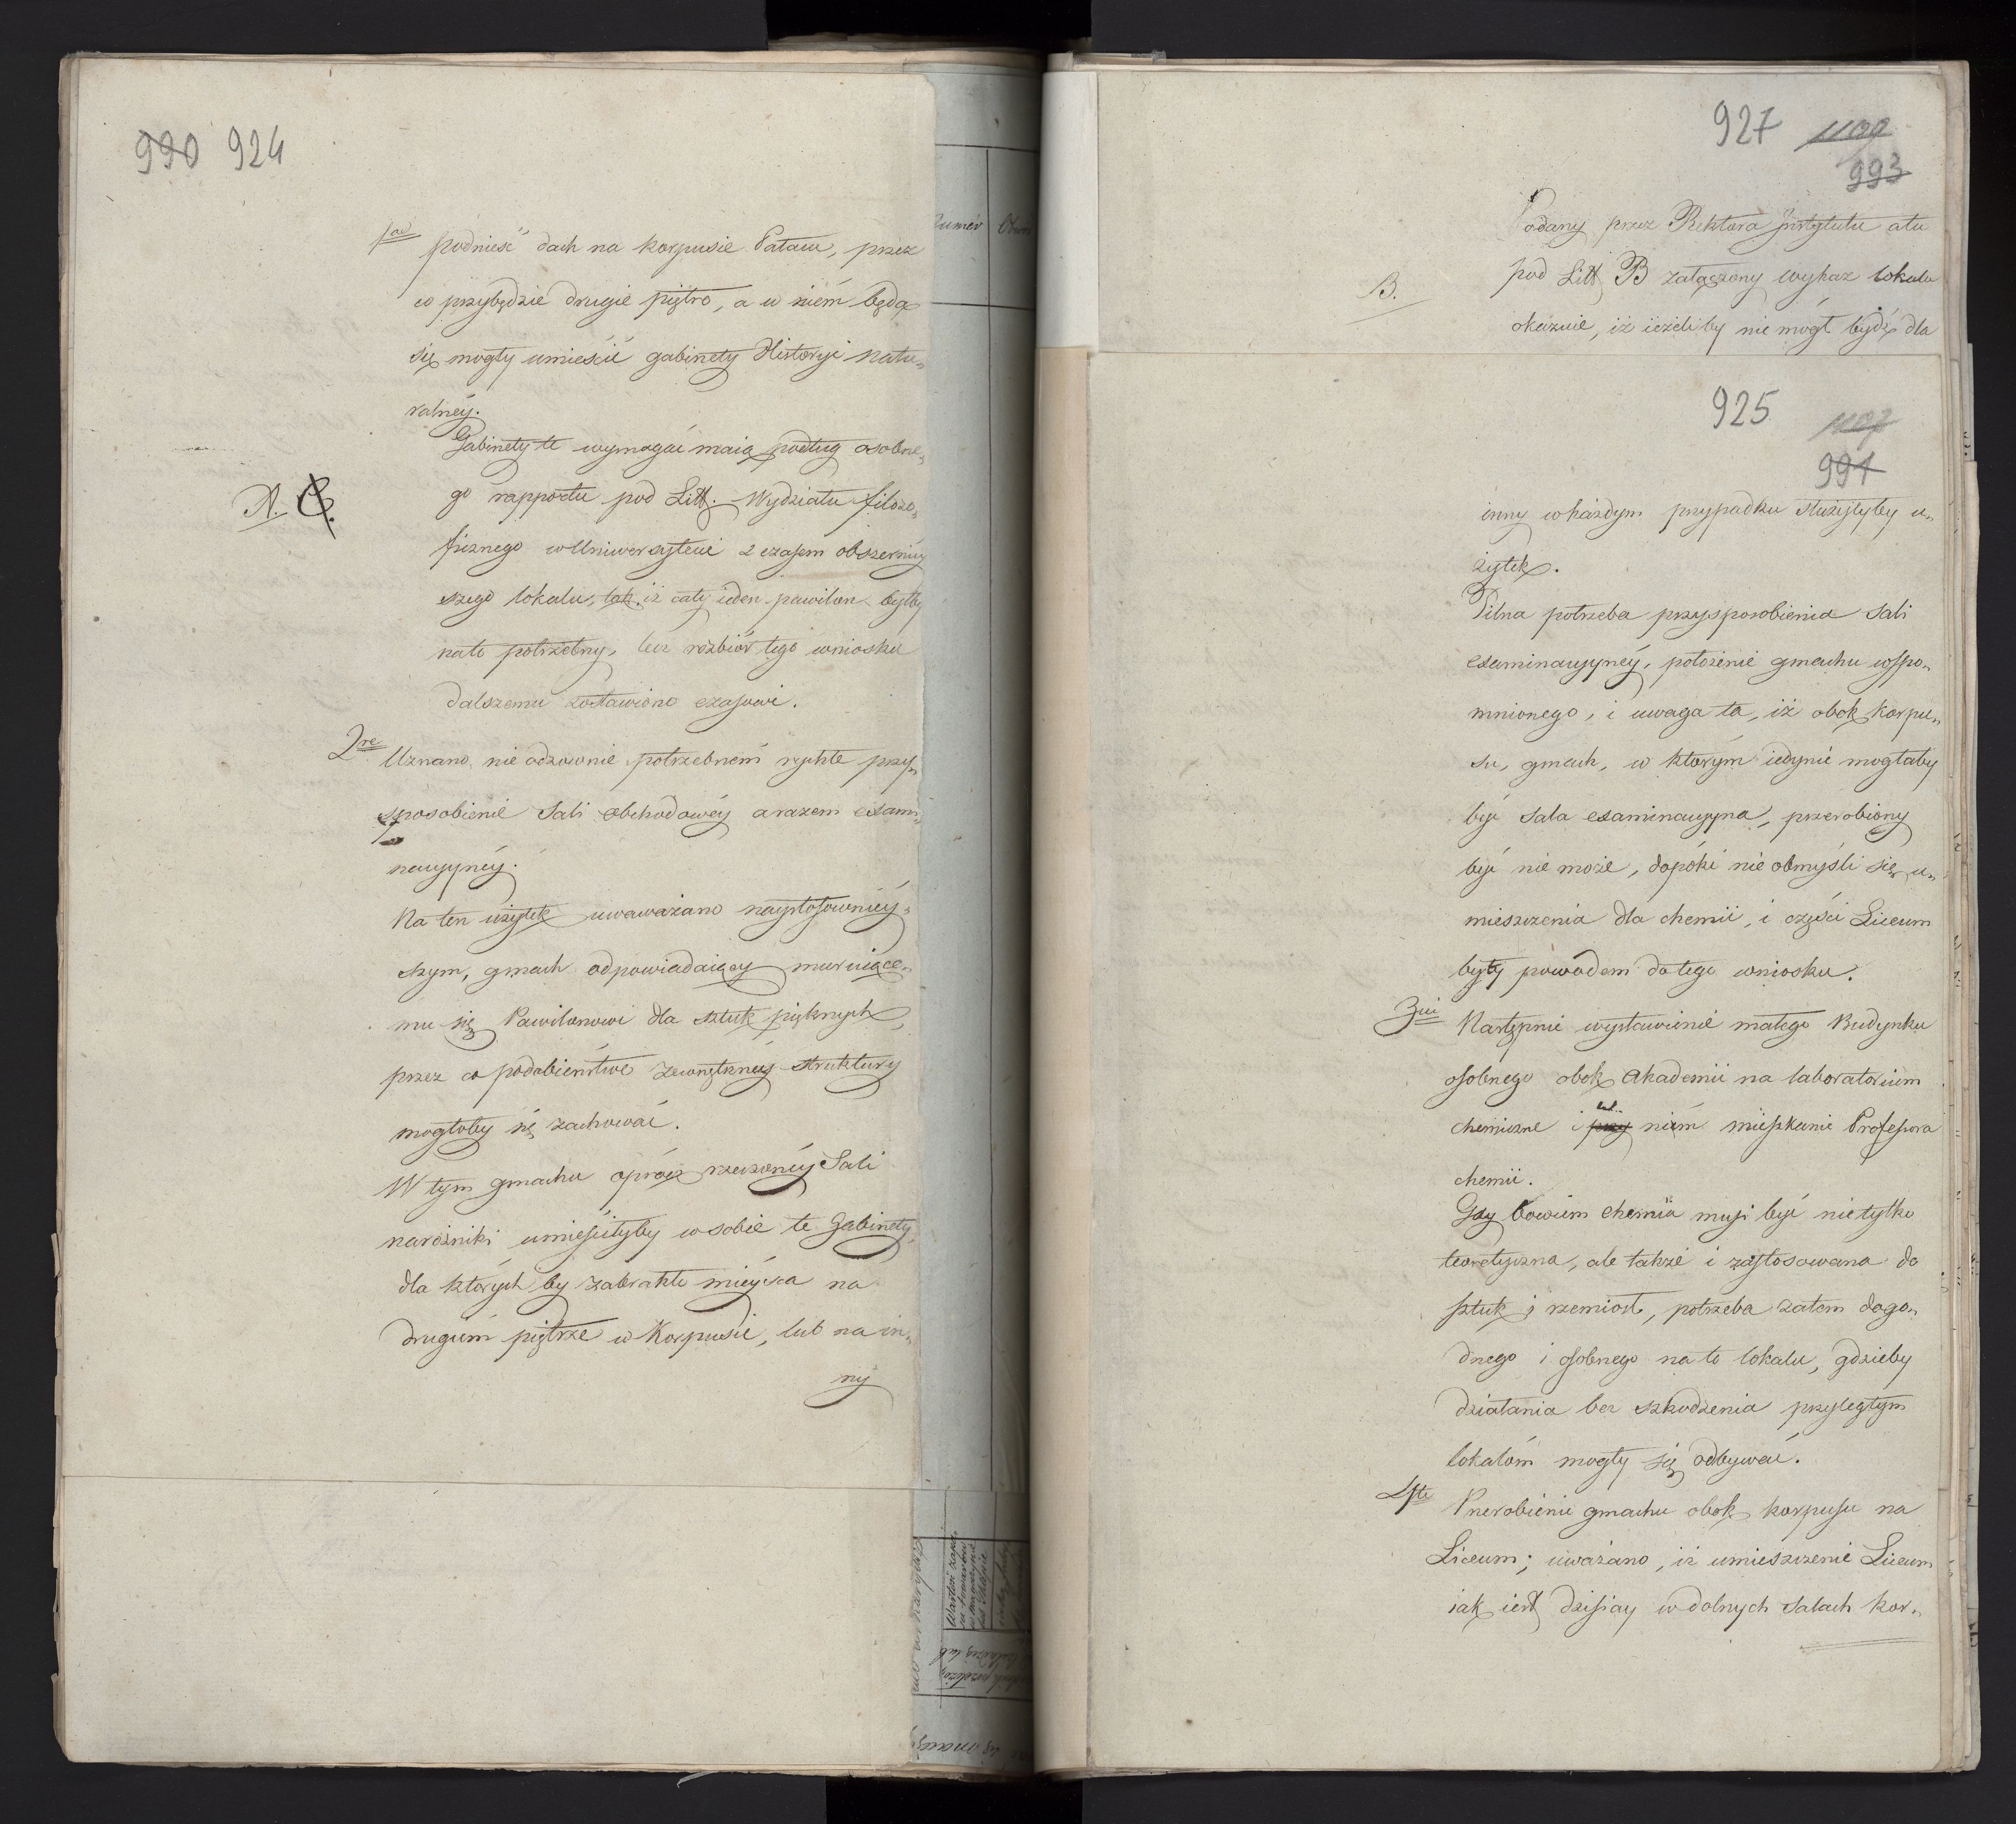 990 924
1od podnieść dach na korpusie Pałacu, przez
co przybędzie drugie piętro, a w niém będą
się mogły umieścić gabinety Historyi natu„
ralnéy.
Gabinety te wymagać maią podług osobne„
A. C.
go rapportu pod Litt. Wydziału filozo„
ficznego w Uniwersytecie z czasem obszerniey
szego lokalu, tak iż cały ieden pawilon byłby
na to potrzebny, lecz rozbiór tego wniosku
dalszemu zostawiono czasowi.
2re Uznano nieodzownie potrzebném rychłe przy„
sposobienie Sali obchodowéy a razem exami„
nacyynéy.
Na ten użytek uważano naystosownieÿ„
szym, gmach odpowiadaiący muruiące„
mu się Pawilonowi dla sztuk pięknych,
przez co podobieństwo zewnętrznéy struktury
mogłoby się zachować.
W tym gmachu oprócz rzeczonéy Sali
narożniki umieściłyby w sobie te Gabinety,
dla których by zabrakło mieysca na
drugiém piętrze w Korpusie, lub na in„
ny
Numer
927 993
Podany przez Rektora Instytutu atu
B.
pod Litt B załączony wykaz lokalu
okazuie, iż ieżeliby nie mógł bydź dla
925
991
inny w każdym przypadku służyłyby u„
żytek.
Pilna potrzeba przysposobienia Sali
examinacyynéy, położenie gmachu wspo„
mnionego, i uwaga ta, iż obok korpu„
su, gmach, w którym iedynie mogłaby
być sala examinacyyna, przerobiony
być nie może, dopóki nie obmyśli się u„
mieszczenia dla chemii, i części Liceum
były powodem do tego wniosku.
3cie Następnie wystawienie małego Budynku
osobnego obok Akademii na laboratorium
chemiczne i przy niém mieszkanie Professora
chemii.
Gdy bowiem chemia musi być nietylko
teoretyczna, ale także i zastosowana do
sztuk i rzemiosł, potrzeba zatem dogo„
dnego i osobnego na to lokalu, gdzieby
działania bez szkodzenia przyległym
lokalóm mogły się odbywać.
4te Przerobienie gmachu obok korpusu na
Liceum; uważano, iż umieszczenie Liceum
iak iest dzisiay w dolnych salach kor„